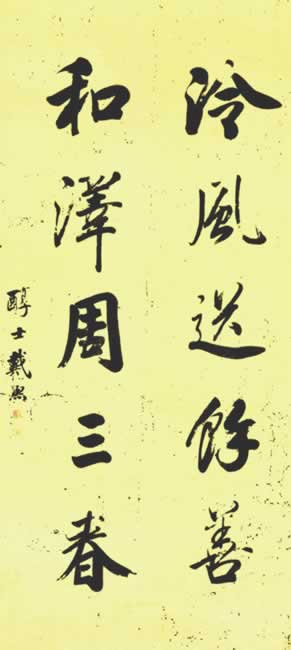 泠風送餘善
和澤周三春
醇士戴熙